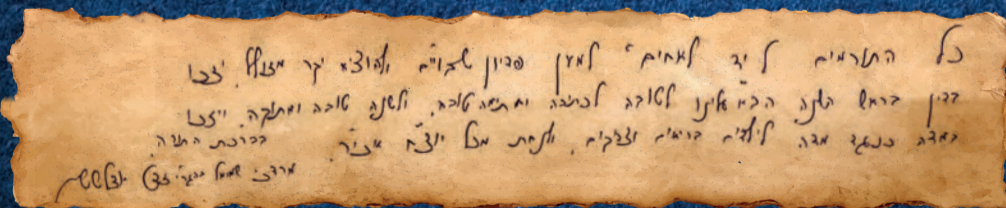 כל התורמים ל"יד לאחים" למען פדיון שבויים ולהוציא יקר מזולל, יזכו
בדין בראש השנה הבא עלינו לטובה לכתיבה וחתימה טובה, ולשנה טובה ומתוקה, ויזכו
במדה כנגד מדה לילדים בריאים וצדיקים, ולנחת מכל יוצ"ח אכי"ר. בברכת התורה,
מרדכי שמואל